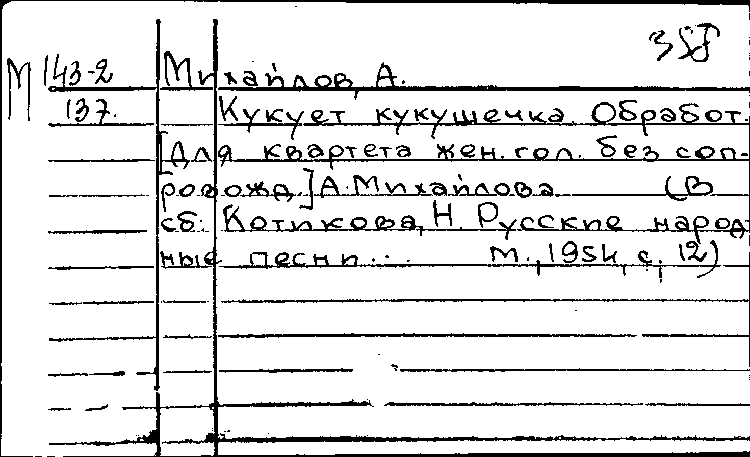 М 143-2 Михайлов, А.
137. Кукует кукушечка. Обработ.
[для квартета жен. гол. без соп-
ровожд.] А. Михайлова (В
сб: Котикова, Н. Русские народ
ные песни... М., 1954, с, 12)